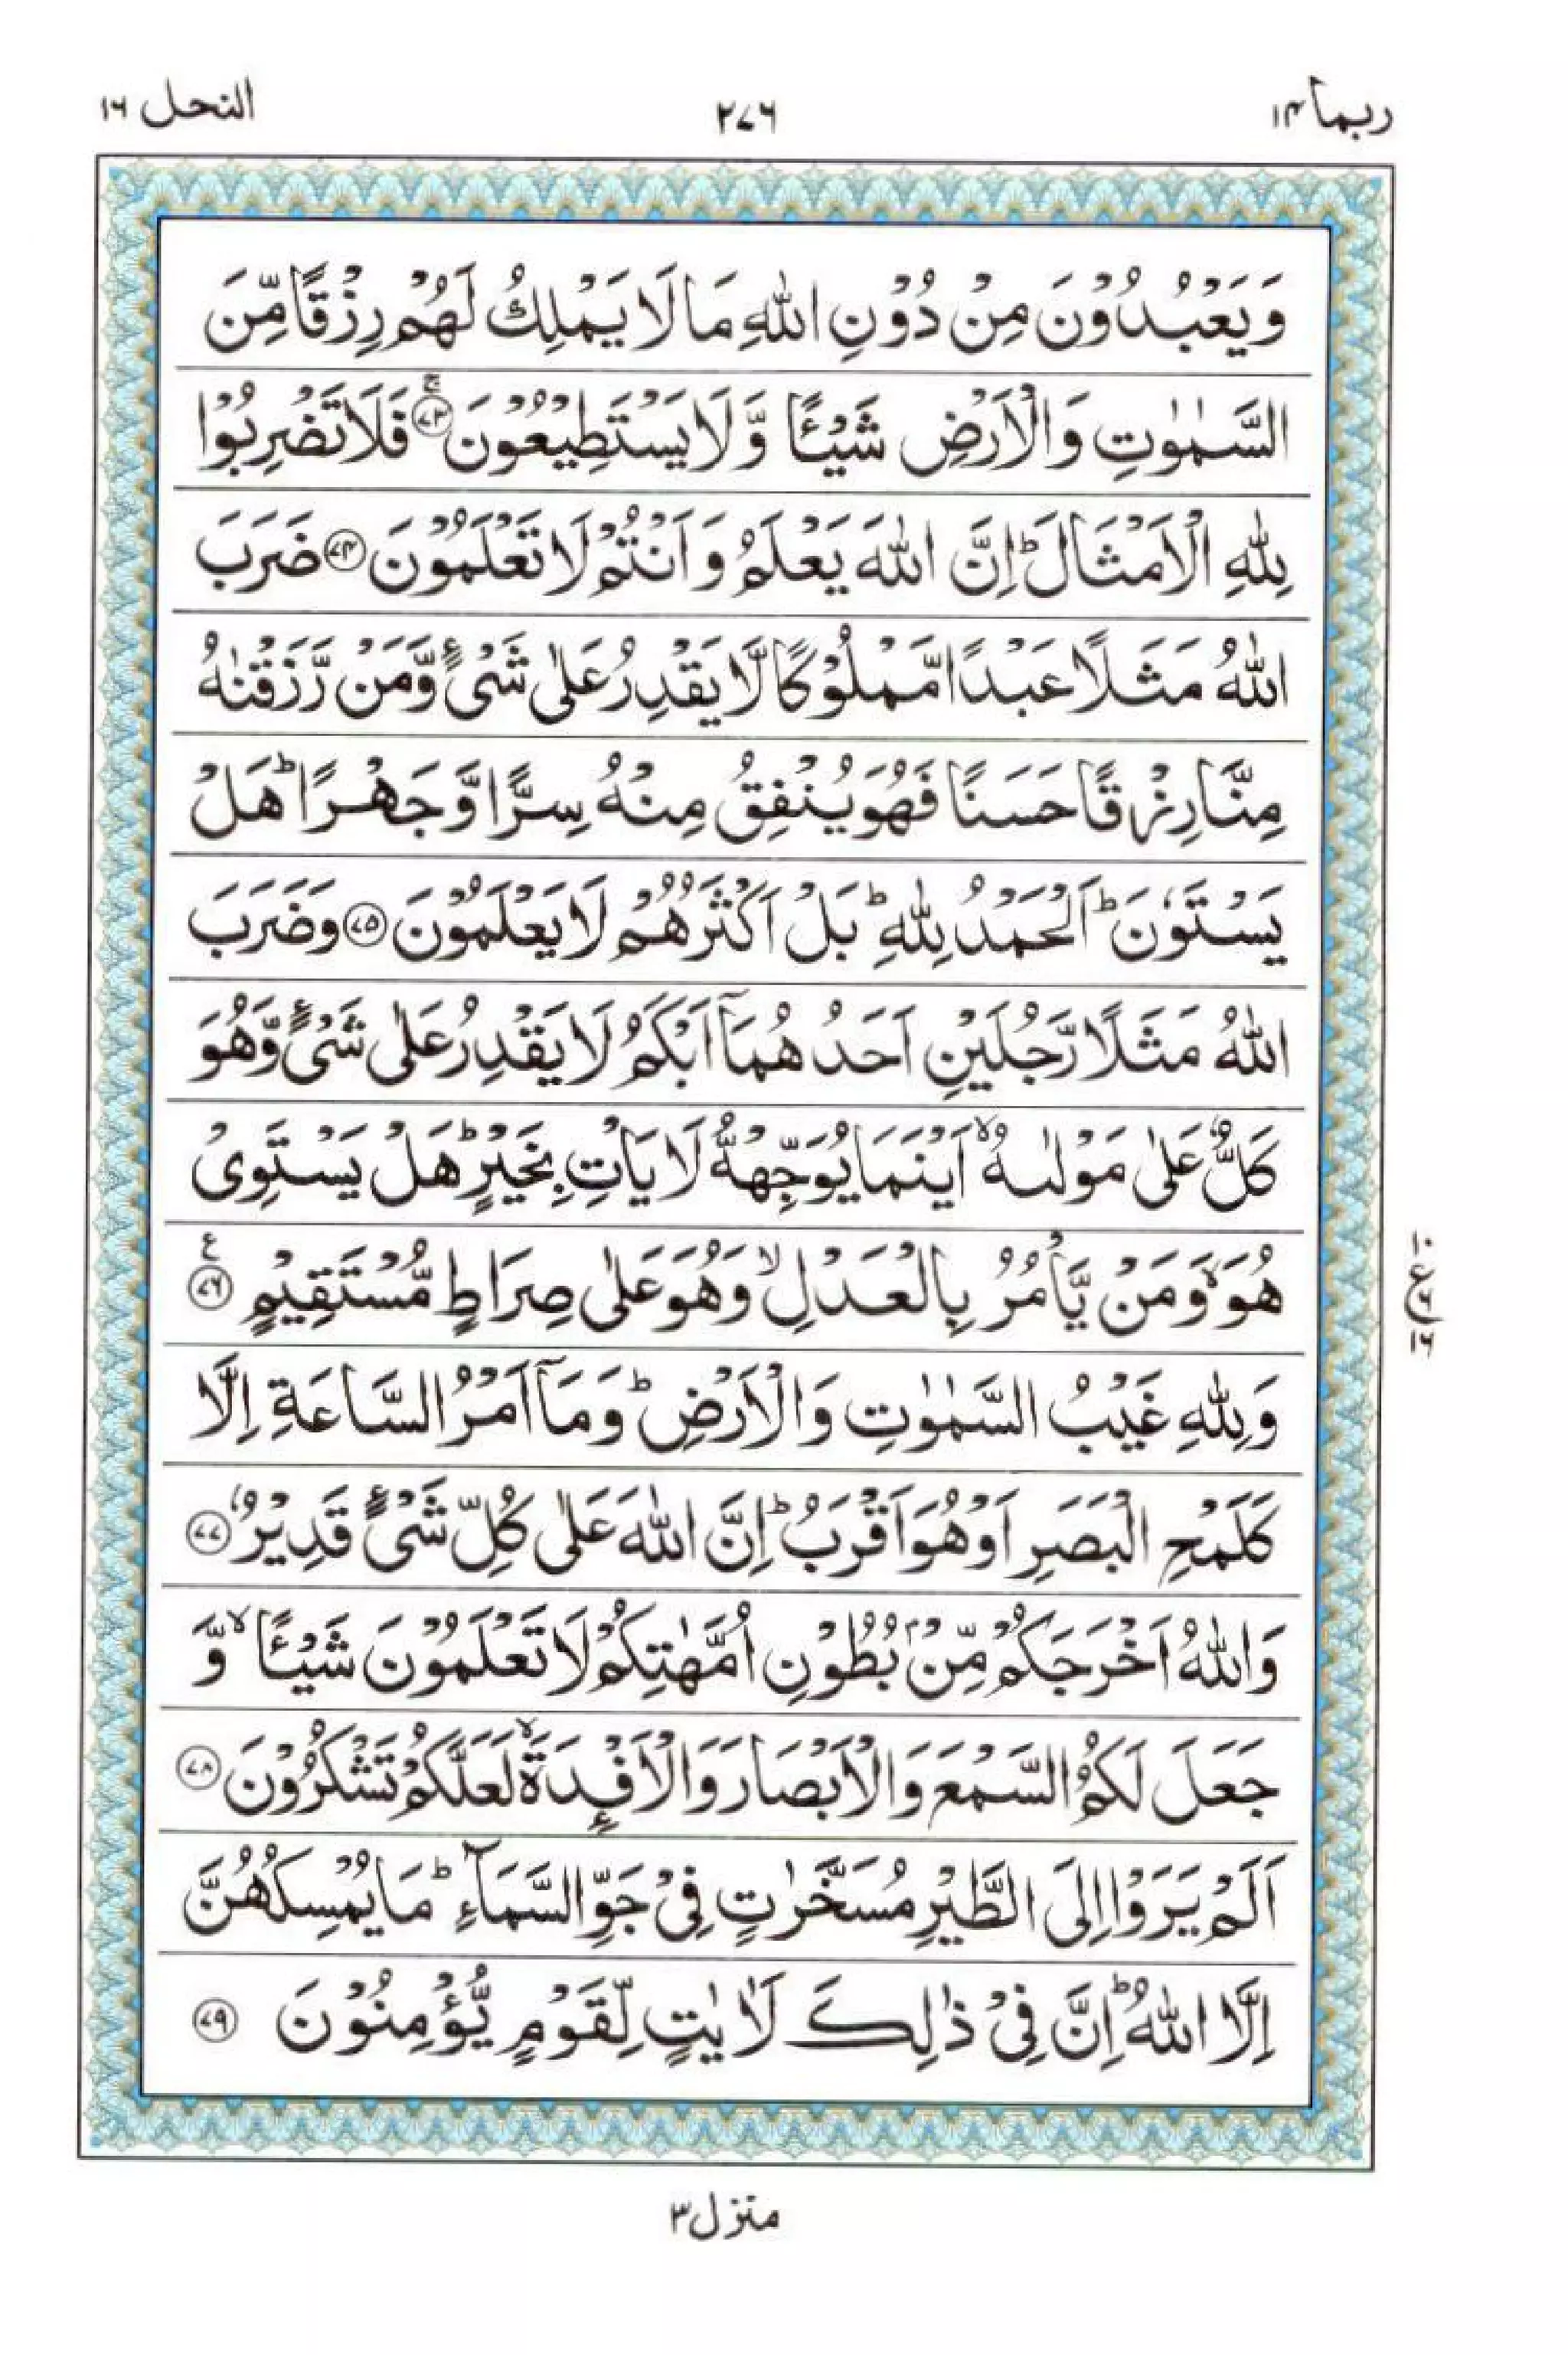 ربما ١٤
٢٧٦
النحل ١٦
وَيَعْبُدُوْنَ مِنْ دُوْنِ اللّٰهِ مَا لَا يَمْلِكُ لَهُمْ رِزْقًا مِّنَ
السَّمٰوٰتِ وَالْاَرْضِ شَيْـًٔا وَّلَا يَسْتَطِيْعُوْنَ ۚ ﴿٧٣﴾ فَلَا تَضْرِبُوْا
لِلّٰهِ الْاَمْثَالَ ؕ اِنَّ اللّٰهَ يَعْلَمُ وَاَنْتُمْ لَا تَعْلَمُوْنَ ﴿٧٤﴾ ضَرَبَ
اللّٰهُ مَثَلًا عَبْدًا مَّمْلُوْكًا لَّا يَقْدِرُ عَلٰى شَىْءٍ وَّمَنْ رَّزَقْنٰهُ
مِنَّا رِزْقًا حَسَنًا فَهُوَ يُنْفِقُ مِنْهُ سِرًّا وَّجَهْرًا ؕ هَلْ
يَسْتَوٗنَ ؕ اَلْحَمْدُ لِلّٰهِ ؕ بَلْ اَكْثَرُهُمْ لَا يَعْلَمُوْنَ ﴿٧٥﴾ وَضَرَبَ
اللّٰهُ مَثَلًا رَّجُلَيْنِ اَحَدُهُمَاۤ اَبْكَمُ لَا يَقْدِرُ عَلٰى شَىْءٍ وَّهُوَ
كَلٌّ عَلٰى مَوْلٰىهُ ۙ اَيْنَمَا يُوَجِّهْهُّ لَا يَاْتِ بِخَيْرٍ ؕ هَلْ يَسْتَوِىْ
هُوَ ۙ وَمَنْ يَّاْمُرُ بِالْعَدْلِ ۙ وَهُوَ عَلٰى صِرَاطٍ مُّسْتَقِيْمٍ ﴿٧٦﴾ ع
وَلِلّٰهِ غَيْبُ السَّمٰوٰتِ وَالْاَرْضِ ؕ وَمَاۤ اَمْرُ السَّاعَةِ اِلَّا
كَلَمْحِ الْبَصَرِ اَوْ هُوَ اَقْرَبُ ؕ اِنَّ اللّٰهَ عَلٰى كُلِّ شَىْءٍ قَدِيْرٌ ﴿٧٧﴾
وَاللّٰهُ اَخْرَجَكُمْ مِّنْۢ بُطُوْنِ اُمَّهٰتِكُمْ لَا تَعْلَمُوْنَ شَيْـًٔا ۙ وَّ
جَعَلَ لَكُمُ السَّمْعَ وَالْاَبْصَارَ وَالْاَفْـِٕدَةَ ۙ لَعَلَّكُمْ تَشْكُرُوْنَ ﴿٧٨﴾
اَلَمْ يَرَوْا اِلَى الطَّيْرِ مُسَخَّرٰتٍ فِىْ جَوِّ السَّمَآءِ ؕ مَا يُمْسِكُهُنَّ
اِلَّا اللّٰهُ ؕ اِنَّ فِىْ ذٰلِكَ لَاٰيٰتٍ لِّقَوْمٍ يُّؤْمِنُوْنَ ﴿٧٩﴾
منزل ٣